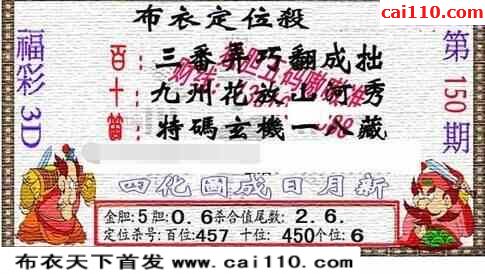 彩经网
cai110.com
布衣定位殺
福彩3D
第150期
百:三番弄巧翻成拙
十:九州花放山河秀
笛:特碼玄機一八藏
四化國成日月新
金胆:5胆:0.6杀合值尾数:2.6.
定位杀号:百位:457 十位:450个位:6
布衣天下首发 www.cai110.com